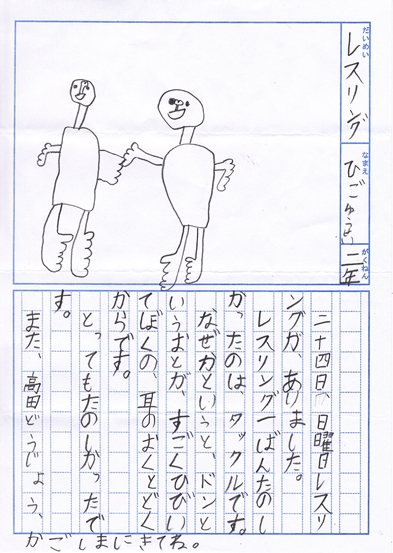 だいめい
レスリング
なまえ
ひご
がくねん
二年
二十四日、日曜日レスリ
ングが、ありました。
レスリング一ばんたのし
かったのは、タックルです。
なぜかというと、ドンと
いうおとが、すごくひびい
てぼくの、耳のおくとどく
からです。
とってもたのしかったで
す。
また、高田どうじょう、
かごしまにきてね。